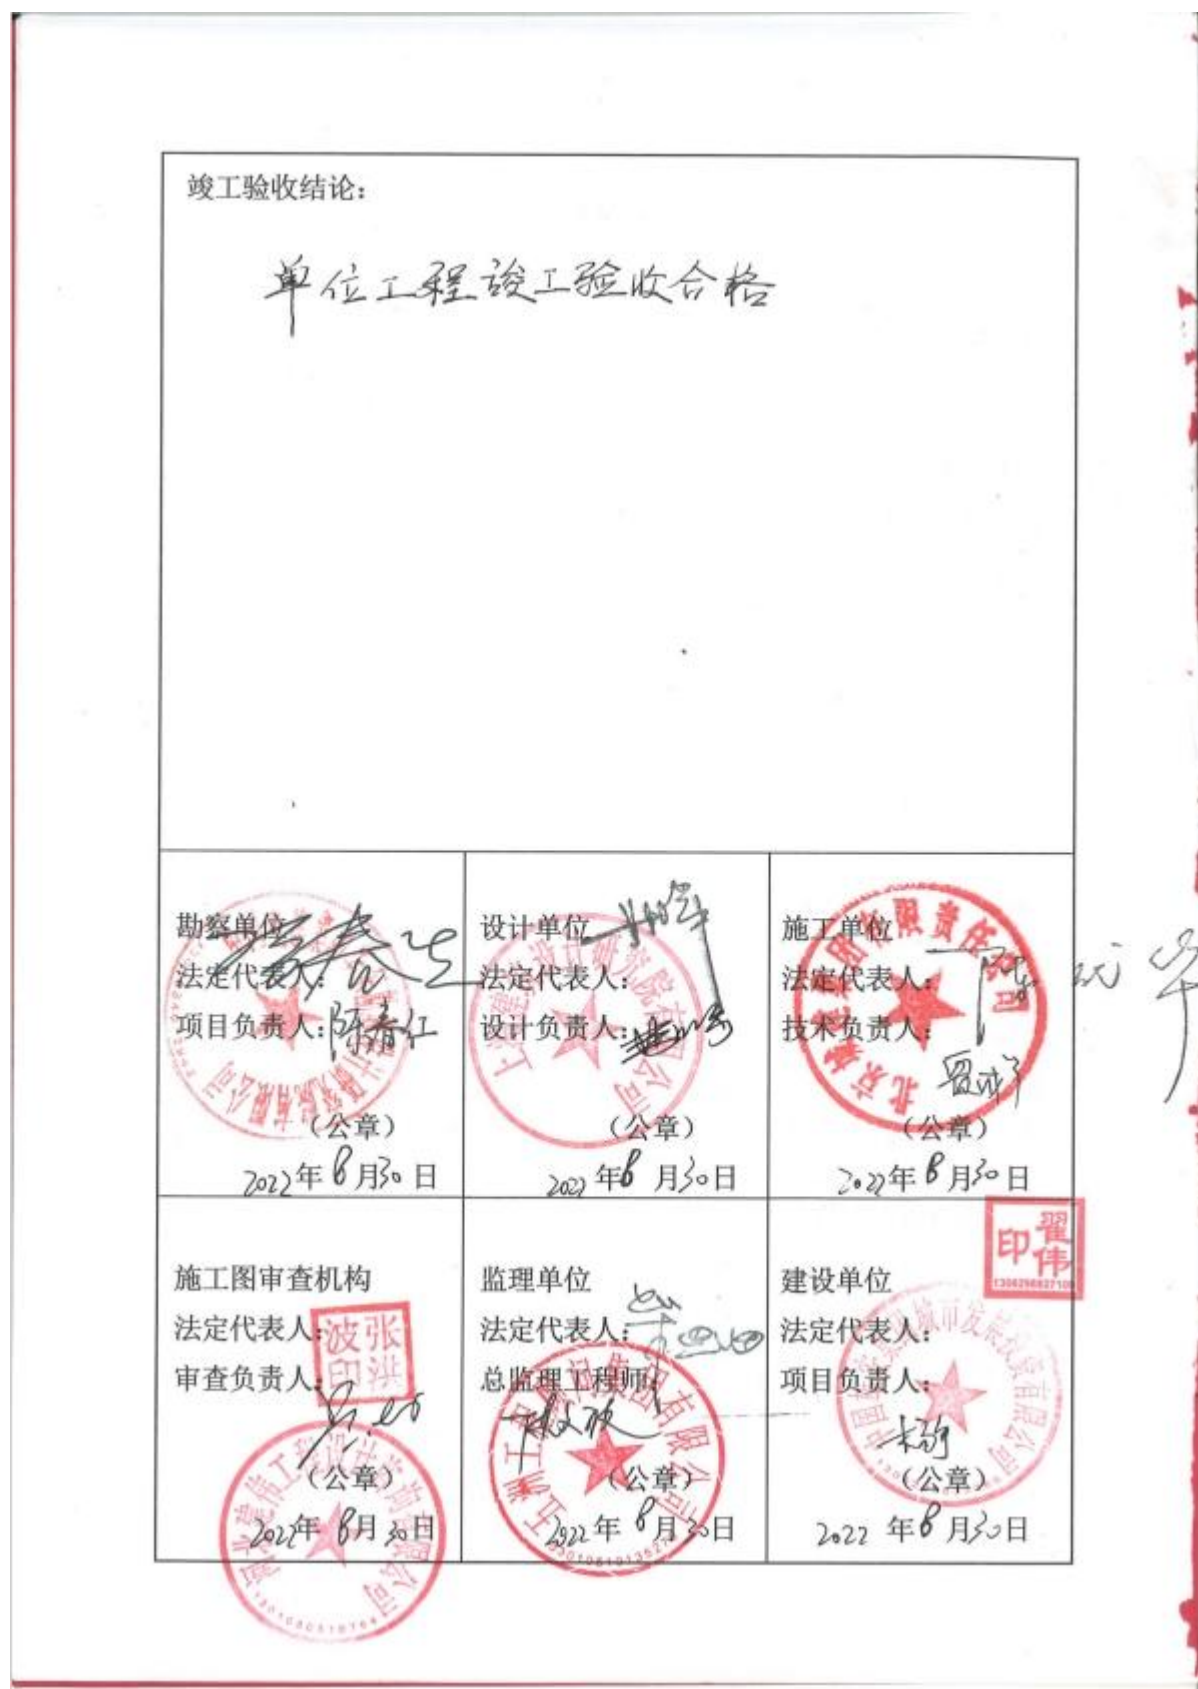 竣工验收结论：
单位工程竣工验收合格
勘察单位
法定代表人：
项目负责人：陈春红
（公章）
2022年8月30日
设计单位
法定代表人：
设计负责人：
（公章）
2022年8月30日
施工单位
法定代表人：
技术负责人：
北京城建集团有限责任公司
（公章）
2022年8月30日
施工图审查机构
法定代表人：
张洪波印
审查负责人：
（公章）
2022年8月30日
监理单位
法定代表人：
总监理工程师：
五洲工程顾问集团有限公司
（公章）
2022年8月30日
翟伟印
建设单位
法定代表人：
项目负责人：
（公章）
2022年8月30日